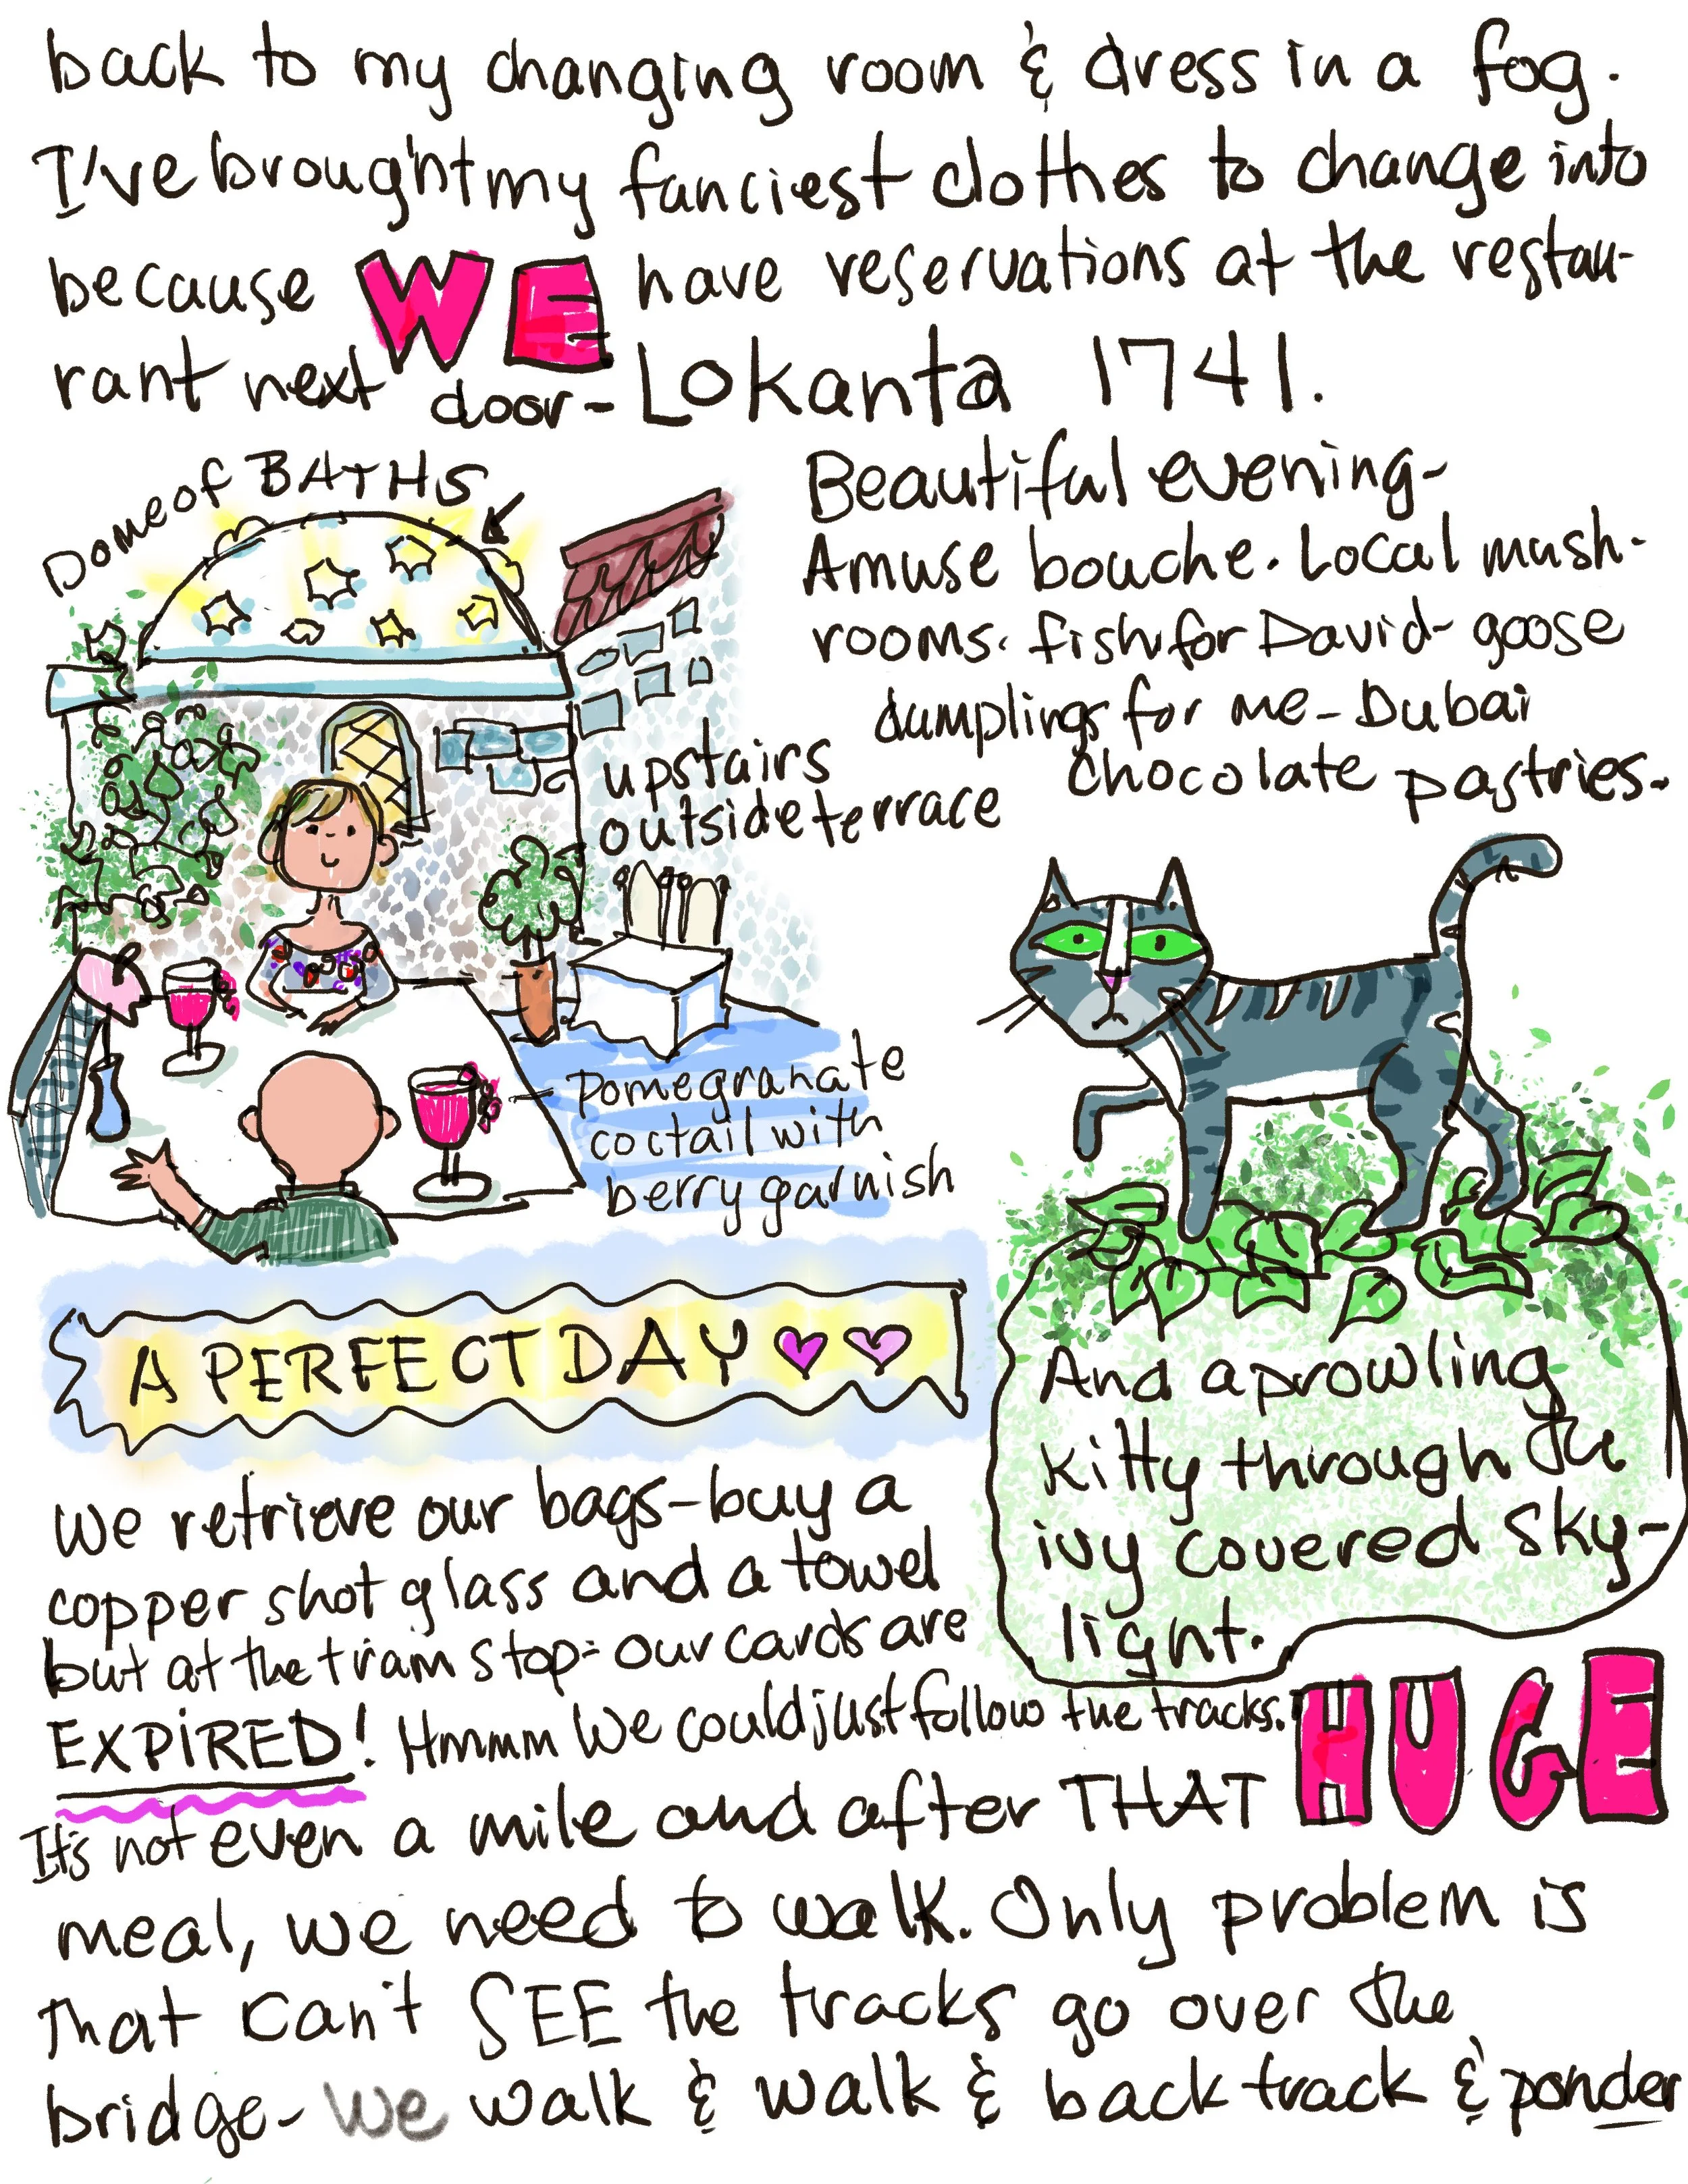 back to my changing room & dress in a fog.
I've brought my fanciest clothes to change into
because WE have reservations at the restau-
rant next door - Lokanta 1741.
Dome of BATHS
Beautiful evening-
Amuse bouche. Local mush-
rooms. fish for David- goose
dumplings for me - Dubai
chocolate pastries.
upstairs
outside terrace
pomegranate
coctail with
berry garnish
A PERFECT DAY
And a prowling
kitty through the
ivy covered sky-
light.
We retrieve our bags - buy a
copper shot glass and a towel
but at the tram stop- our cards are
EXPIRED! Hmmm We could just follow the tracks.
It's not even a mile and after THAT HUGE
meal, we need to walk. Only problem is
that can't SEE the tracks go over the
bridge - We walk & walk & back track & ponder